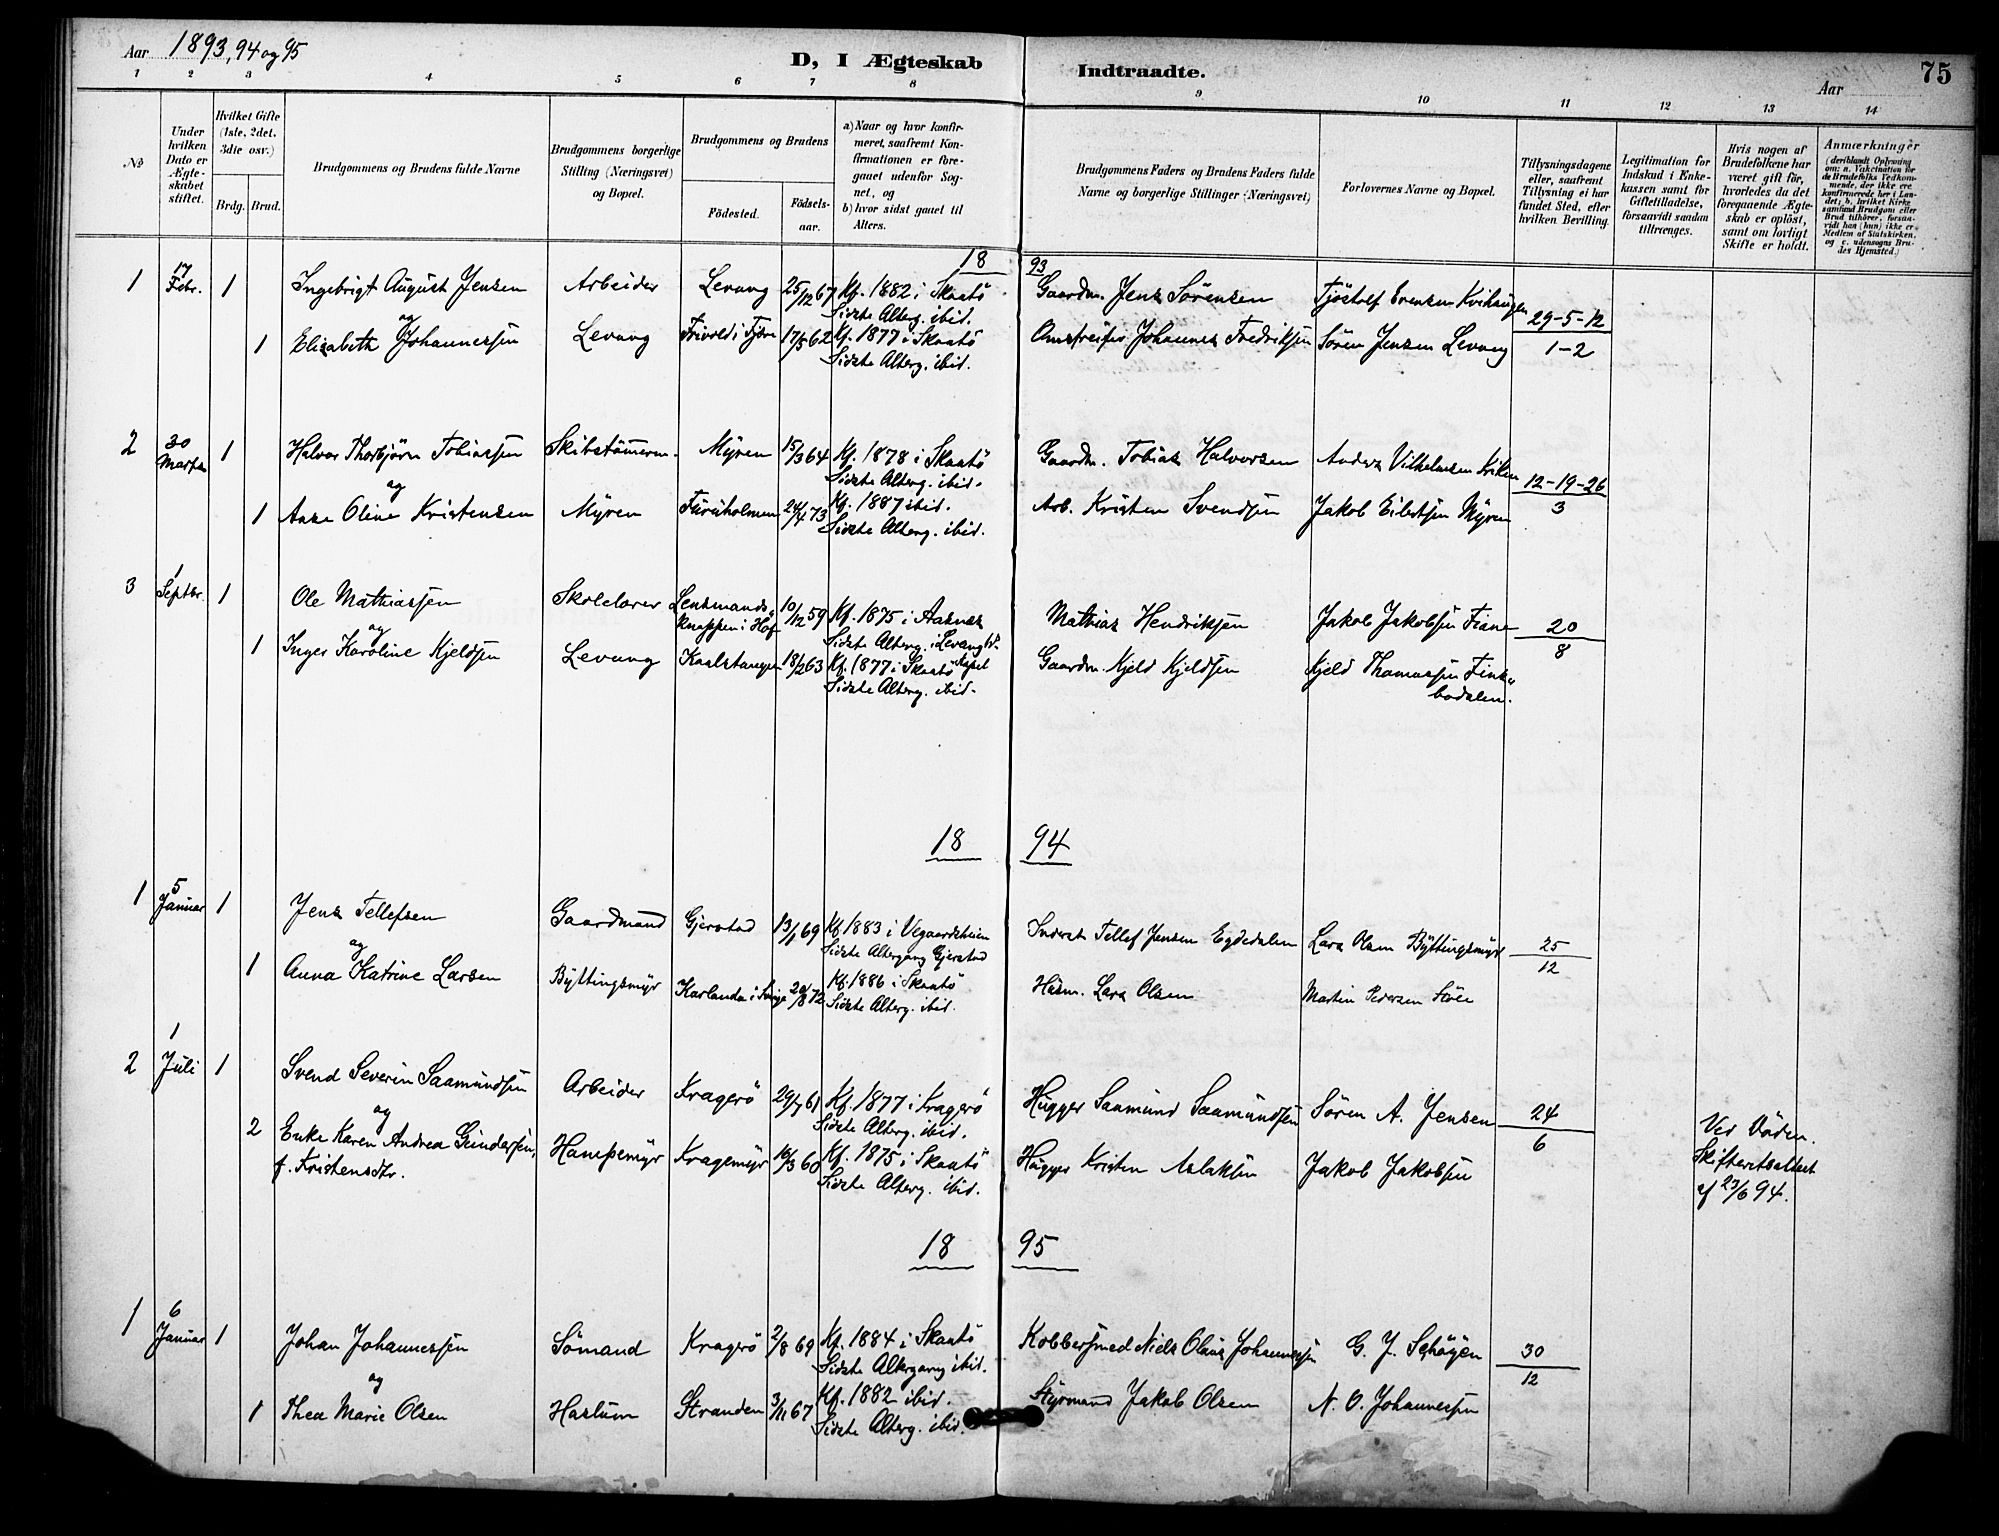 Aar 1893, 94 og 95
D, I Ægteskab Indtraadte.
Aar
75
1 2 3 4 5 6 7 8 9 10 11 12 13 14
No
Under hvilken Dato er Ægteskabet stiftet.
Hvilket Gifte (1ste, 2det, 3die osv.)
Brdg. Brud.
Brudgommens og Brudens fulde Navne
Brudgommens borgerlige Stilling (Næringsvei) og Bopæl.
Brudgommens og Brudens
Födested.
Födselsaar.
a) Naar og hvor konfirmeret, saafremt Konfirmationen er foregaaet udenfor Sognet, og
b) hvor sidst gaaet til Alters.
Brudgommens Faders og Brudens Faders fulde Navne og borgerlige Stillinger (Næringsvei)
Forlovernes Navne og Bopæl.
Tillysningsdagene eller, saafremt Tillysning ei har fundet Sted, efter hvilken Bevilling.
Legitimation for Indskud i Enkekassen samt for Giftetilladelse, forsaavidt saadan tiltrænges.
Hvis nogen af Brudefolkene har været gift før, hvorledes da det foregaaende Ægteskab er oplöst, samt om lovligt Skifte er holdt.
Anmærkninger (deriblandt Oplysning om: a. Vakcination for de Brudefolks Vedkommende, der ikke ere konfirmerede her i Landet; b. hvilket Kirkesamfund Brudgom eller Brud tilhörer, forsaavidt han (hun) ikke er Medlem af Statskirken, og c. udensogns Brudes Hjemsted.)
18 93
1 17 Febr. 1 Ingebrigt August Jensen Arbeider Levang 25/12 67 Kf. 1882 i Skaatö Gaardm. Jens Sörensen Tjöstolf Evensen Kvihaugen 29-5-12
og Sidste Alterg. ibid.
1 Elisabeth Johannessen Levang Frivold i Fjære 17/5 62 Kf. 1877 i Skaatö Omstreifer Johannes Fredriksen Sören Jensen Levang 1-2
Sidste Alterg. ibid.
2 30 Marts 1 Halvor Thorbjörn Tobiassen Skibstömerm. Myren 15/3 64 Kf. 1878 i Skaatö Gaardm. Tobias Halvorsen Anders Vilhelmsen Kviken 12-19-26
og Sidste Alterg. ibid.
1 Aase Oline Kristensen Myren Furuholmen 24/4 73 Kf. 1887 ibid. Arb. Kristen Svendsen Jakob Eilertsen Myren 3
Sidste Alterg. ibid.
3 1 Septbr. 1 Ole Mathiassen Skolelærer Lensmandsknappen i Hof 10/12 59 Kf. 1875 i Aasnes Mathias Hendriksen Jakob Jakobsen Fiane 20
og Sidste Alterg. i Levangs Kapel
1 Inger Karoline Kjeldsen Levang Kaalstangen 18/2 63 Kf. 1877 i Skaatö Gaardm. Kjeld Kjeldsen Kjeld Thomassen Finsbodalen. 8
Sidste Alterg. ibid.
18 94
1 5 Januar 1 Jens Tellefsen Gaardmand Gjerstad 13/1 69 Kf. 1883 i Vegaardsheien Inderst Tellef Jensen Egdedalen Lars Olsen Byttingsmyr 25
og Sidste Altergang Gjerstad
1 Anna Katrine Larsen Byttingsmyr Karlanda i Sverige 20/8 72 Kf. 1886 i Skaatö Husm. Lars Olsen Martin Pedersen 12
Sidste Alterg. ibid.
2 1 Juli 1 Svend Severin Saamundsen Arbeider Kragerö 29/7 61 Kf. 1877 i Kragerö Hugger Saamund Saamundsen Sören A. Jensen 24
og Sidste Alterg. ibid.
2 Enke Karen Andrea Gundersen, f. Kristensdtr. Hampemyr Kragemyr 16/3 60 Kf. 1875 i Skaatö Hugger Kristen Aslaksen Jakob Jakobsen 6 Ved Döden. Skifteretsattest af 23/6 94.
Sidste Alterg. ibid.
18 95
1 6 Januar 1 Johan Johannessen Sömand Kragerö 2/8 69 Kf. 1884 i Skaatö Kobbersmed Niels Olaus Johannessen G. J. Schöyen 30
og Sidste Altergang ibid.
1 Thea Marie Olsen Haslum Stranden 3/11 67 Kf. 1882 ibid. Styrmand Jakob Olsen N. O. Johannessen 12
Sidste Alterg. ibid.